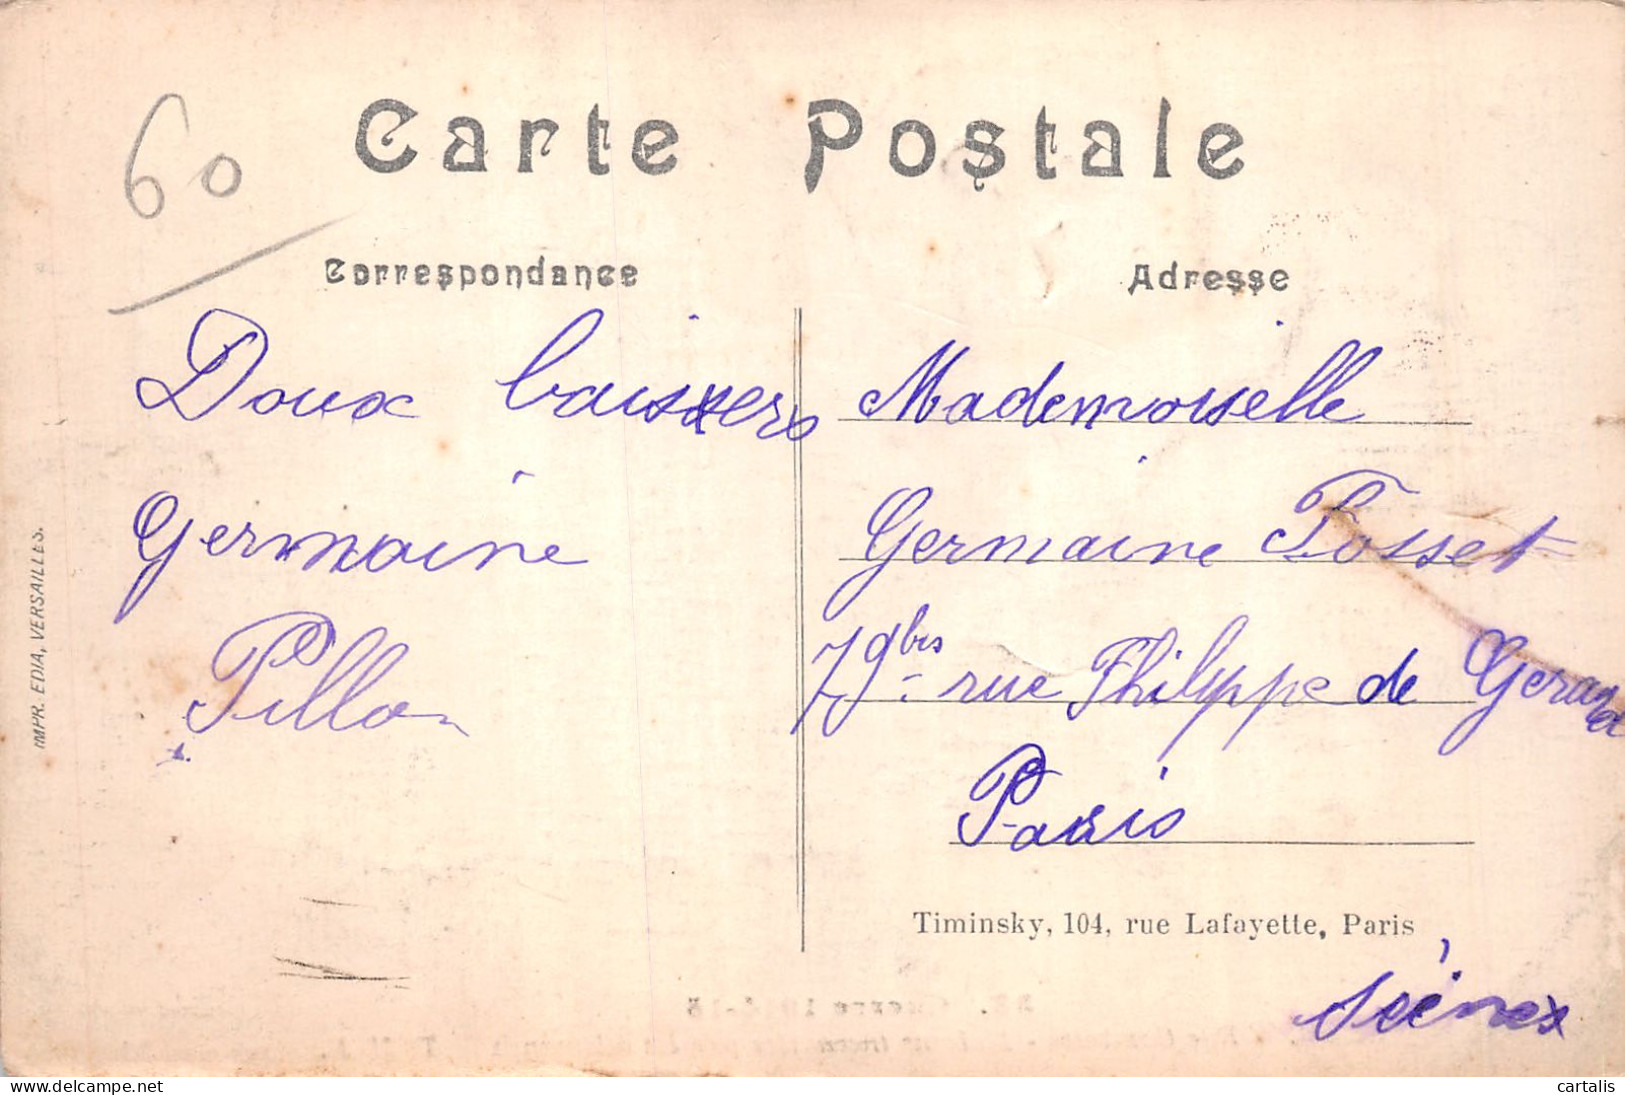 60
Carte Postale
Correspondance
Adresse
Doux baisers
Germaine
Pillon
Mademoiselle
Germaine Posset
79bis rue Philippe de Gerard
Paris
Timinsky, 104, rue Lafayette, Paris
Seine
IMPR. EDIA, VERSAILLES.
cartalis
delcampe.net